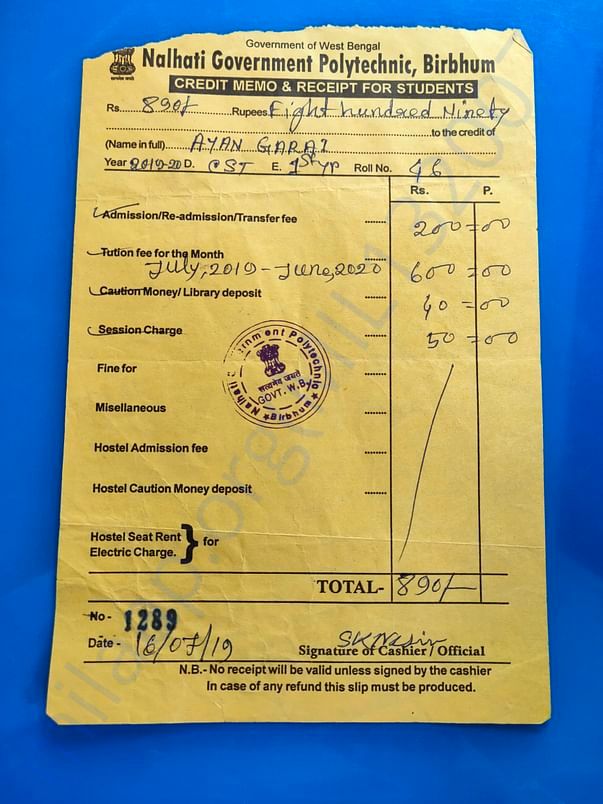 Government of West Bengal
Nalhati Government Polytechnic, Birbhum
CREDIT MEMO & RECEIPT FOR STUDENTS
Rs. 890/- Rupees Eight hundred Ninety
to the credit of
(Name in full) AYAN GARAI
Year 2019-20 D. CST E. 1st yr Roll No. 46
Rs. P.
Admission/Re-admission/Transfer fee ........ 200 = 00
Tution fee for the Month
July, 2019 - June, 2020 600 = 00
Caution Money/ Library deposit ........ 40 = 00
Session Charge ........ 50 = 00
Nalhati Government Polytechnic
सत्यमेव जयते
GOVT. W.B.
★ Birbhum ★
Fine for ........
Misellaneous ........
Hostel Admission fee ........
Hostel Caution Money deposit ........
Hostel Seat Rent
Electric Charge. } for
TOTAL- 890/-
No - 1289
Date - 16/07/19
Signature of Cashier / Official
N.B.- No receipt will be valid unless signed by the cashier
In case of any refund this slip must be produced.